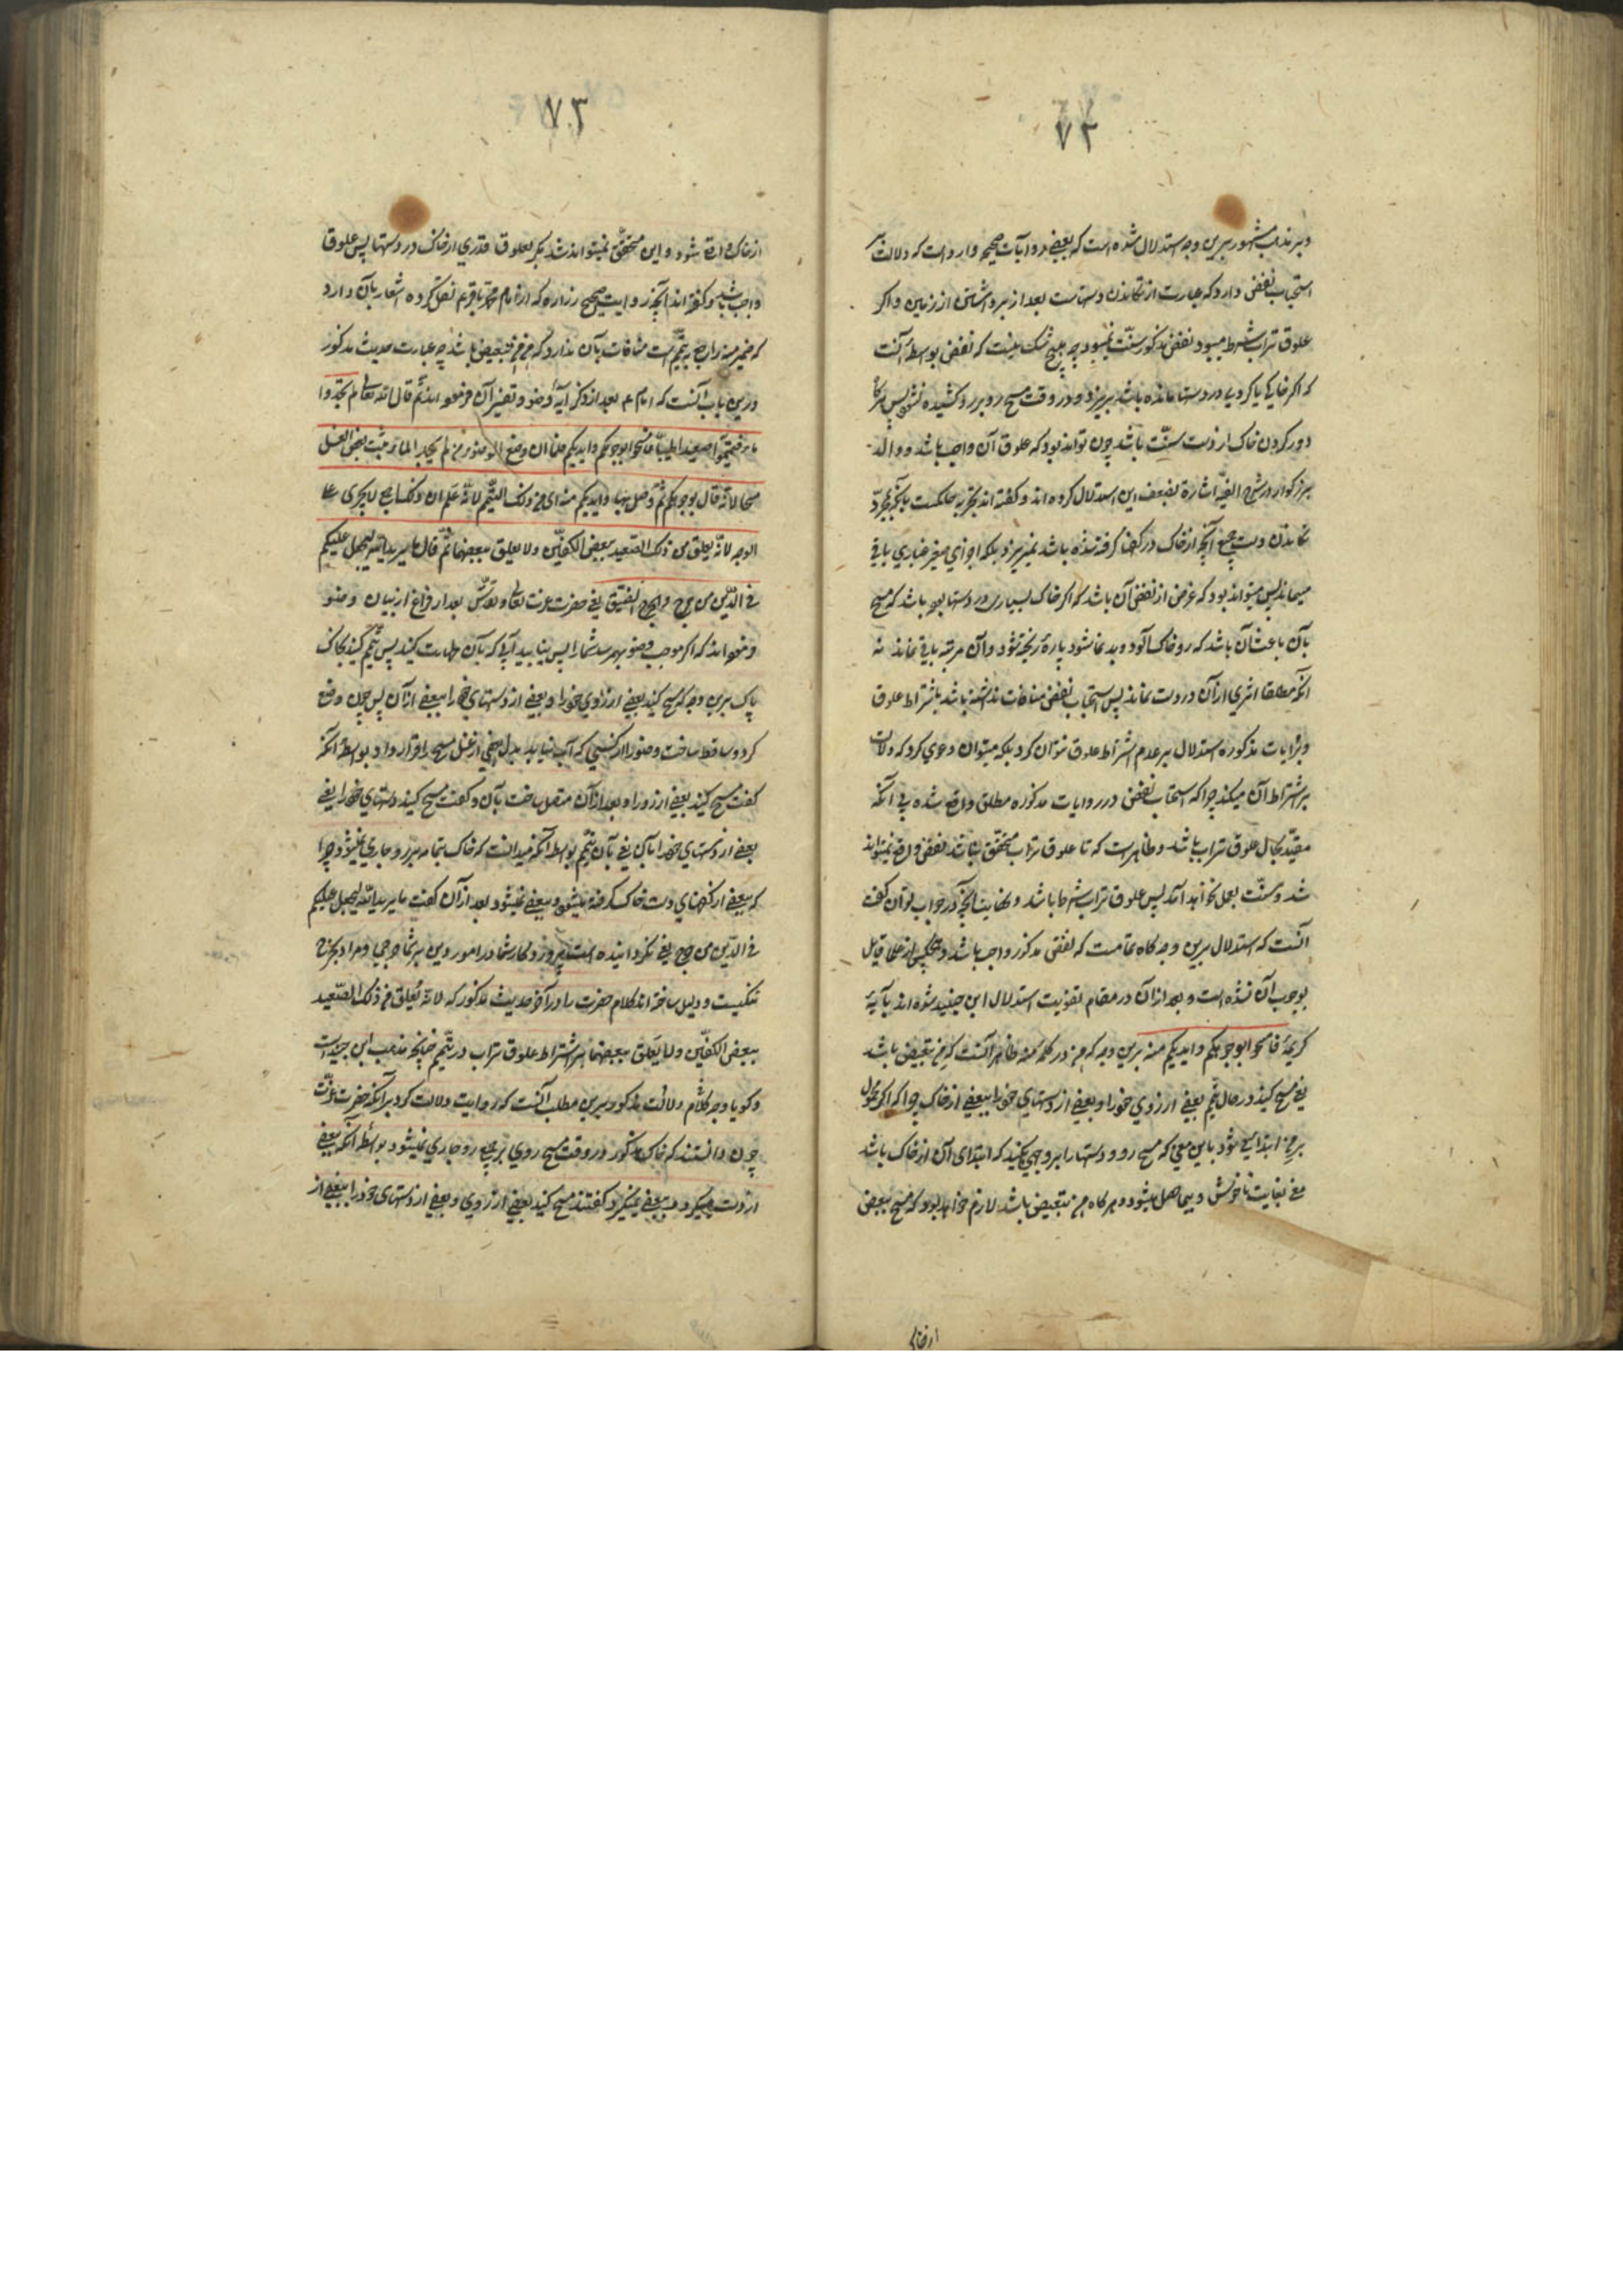 ٧٣
و بر مذهب مشهور برین وجه استدلال شده است که بعضی روایات صحیحه وارد است که دلالت بر
استحباب نفض دارد که عبارت از تکاندن دستهاست بعد از برداشتن از زمین و اکر
علوق تراب شرط میبود نفض مذکور سنّت نمیبود چه هیچ شک نیست که نفض بواسطهٔ آنست
که اکر خاکی یا کردی در دستها مانده باشد بریزد و در وقت مسح رو بر رو کشیده نشود پس هرکاه
دور کردن خاک از دست سنّت باشد چون تواند بود که علوق آن واجب باشد و والد
بزرکوار در شرح الفیّه اشارة بضعف این استدلال کرده اند و کفته اند بتجربه حکمت بآنکه بمجرّد
تکاندن دست جمیع آنچه از خاک در کفها کرفته شده باشد نمیریزد بلکه اجزای صغیر غباری باقی
میماند پس میتواند بود که غرض از نفض آن باشد که اکر خاک بسیاری در دستها بوده باشد که مسح
بآن باعث آن باشد که رو خاک آلود و بدنما شود پارهٔ ریخته شود و آن مرتبه باقی نماند نه
آنکه مطلقا اثری از آن در دست نماند پس استحباب نفض منافات نداشته باشد باشتراط علوق
و بروایات مذکوره استدلال بر عدم اشتراط علوق نتوان کرد بلکه میتوان دعوی کرد که دلالت
بر اشتراط آن میکند چرا که استحباب نفض در روایات مذکوره مطلق واقع شده بی آنکه
مقیّد بحال علوق تراب باشد و ظاهر است که تا علوق تراب متحقّق نباشد نفض واقع نمیتواند
شد و سنّت بعمل نخواهد آمد پس علوق تراب شرط باشد و نهایت آنچه در جواب توان کفت
آنست که استدلال برین وجه کاه تمامست که نفض مذکور واجب باشد و هیچکس از علما قایل
بوجوب آن نشده است و بعد از آن در مقام تقویت استدلال ابن جنید شده اند بآیهٔ
کریمهٔ فامسحوا بوجوهکم و ایدیکم منه برین وجه که من در کلمه منه ظاهرا آنست که من تبعیض باشد
یعنی مسح کنید در حال تیمّم بعضی از روی خود را و بعضی از دستهای خود را ببعضی از خاک چرا که اکر محمول
بر من ابتدایی شود باین معنی که مسح رو و دستها را بر وجهی بکنید که ابتدای آن از خاک باشد
معنی بغایت ناخوش و بیحاصل میشود و هرکاه من تبعیض باشد لازم خواهد بود که مسح ببعض
از خاک
٧٣
از خاک واقع شود و این متحقّق نمیتواند شد مکر بعلوق قدری از خاک در دستها پس علوق
واجب باشد و کفته اند آنچه در روایت صحیح زراره که از امام محمّد باقر ع نقل کرده اشعار بآن دارد
که ضمیر منه راجع به تیمّم است منافات بآن ندارد که من من تبعیض باشد چه عبارت حدیث مذکور
درین باب آنست که امام ع بعد از ذکر آیهٔ وضو و تفسیر آن فرموده اند ثم قال الله تعالی فلم تجدوا
ماء فتیمّموا صعیدا طیبّا فامسحوا بوجوهکم و ایدیکم فلما ان وضع الوضوء عمن لم یجد الماء اثبت بعض الغسل
مسحا لانّه قال بوجوهکم ثم وصل بها و ایدیکم منه ای من ذلک التیمّم لانّه علم ان ذلک اجمع لایجری علی
الوجه لانّه یعلق من ذلک الصّعید ببعض الکفّین ولا یعلق ببعضها ثم قال ما یرید الله لیجعل علیکم
فی الدّین من حرج و الحرج الضیق یعنی حضرت عزت تعالی و تقدّس بعد از فراغ از بیان وضو
فرموده اند که اکر موجب وضو بهم رسد شما را پس نیابید آبی که بآن طهارت کنید پس تیمّم کنید بخاک
پاک برین وجه که مسح کنید بعضی از روی خود را و بعضی از دستهای خود را ببعضی از آن پس چون وضع
کرد و ساقط ساخت وضو را از کسی که آب نیابد بدل بعضی از غسل مسح را قرار داد بواسطهٔ آنکه
کفت مسح کنید بعضی از رو را و بعد از آن متصل ساخت بآن و کفت مسح کنید دستهای خود را یعنی
بعضی از دستهای خود را بآن یعنی بآن تیمّم بواسطه آنکه میدانست که خاک بتمامه بر رو جاری نمیشود چرا
که ببعضی از کفهای دست خاک کرفته میشود و ببعضی نمیشود بعد از آن کفت ما یرید الله لیجعل علیکم
فی الدّین من حرج یعنی نکردانیده است پروردکار شما در امور دین بر شما حرجی و مراد بحرج
تنکیست و دلیل ساخته اند کلام حضرت را در آخر حدیث مذکور که لانّه یعلق من ذلک الصّعید
ببعض الکفّین و لا یعلق ببعضها بر اشتراط علوق تراب در تیمّم چنانچه مذهب ابن جنید است
و کویا وجه کلام دلالت مذکور برین مطلب آنست که روایت دلالت کرد بر آنکه حضرت عزّت
چون دانستند که خاک مذکور در وقت مسح روی بر جمیع رو جاری نمیشود بواسطهٔ آنکه ببعضی
از دست میکیرد و ببعضی نمیکیرد کفتند مسح کنید بعضی از روی و بعضی از دستهای خود را ببعضی از